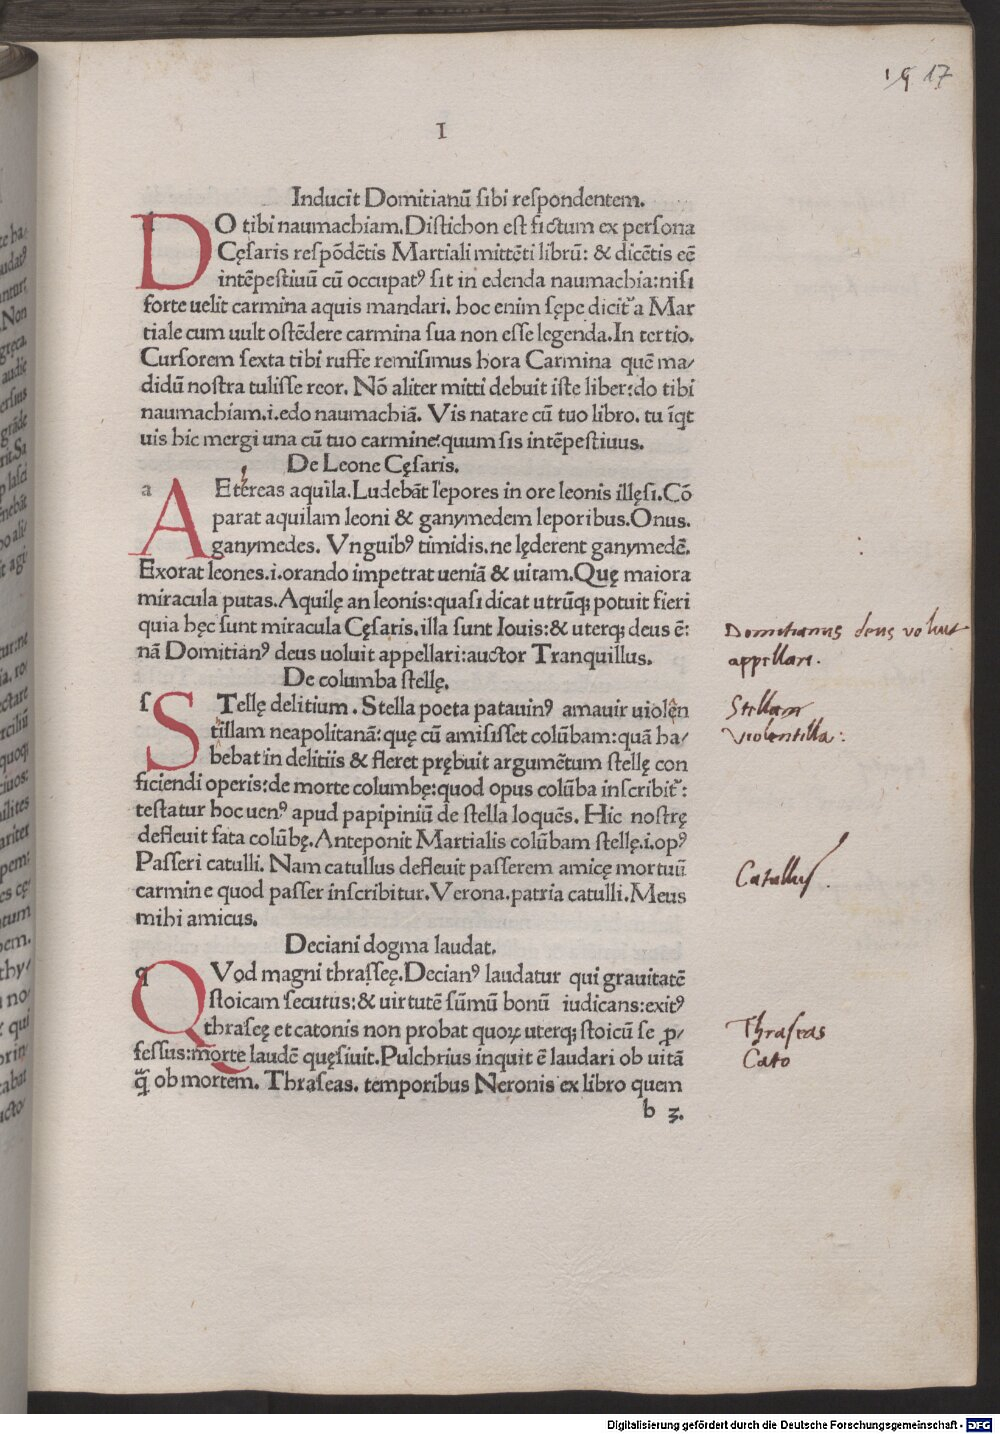 17
I
Inducit Domitianū sibi respondentem.
DO tibi naumachiam. Distichon est fictum ex persona
Cęsaris respōdētis Martiali mittēti librū: & dicētis eē
intēpestiuū cū occupatꝰ sit in edenda naumachia: nisi
forte uelit carmina aquis mandari. hoc enim sępe dicit᷑ a Mar
tiale cum uult ostēdere carmina sua non esse legenda. In tertio.
Cursorem sexta tibi ruffe remisimus hora Carmina quē ma/
didū nostra tulisse reor. Nō aliter mitti debuit iste liber: do tibi
naumachiam .i. edo naumachiā. Vis natare cū tuo libro. tu īqt
uis hic mergi una cū tuo carmine: quum sis intēpestiuus.
De Leone Cęsaris.
a
AEtereas aquila. Ludebāt lepores in ore leonis illęsi. Cō
parat aquilam leoni & ganymedem leporibus. Onus.
ganymedes. Vnguibꝰ timidis. ne lęderent ganymedē.
Exorat leones .i. orando impetrat ueniā & uitam. Quę maiora
miracula putas. Aquilę an leonis: quasi dicat utrūqꝫ potuit fieri
quia hęc sunt miracula Cęsaris. illa sunt Iouis: & uterqꝫ deus ē:
nā Domitianꝰ deus uoluit appellari: auctor Tranquillus.
Domitianus deus voluit
appellari.
De columba stellę.
s
STellę delitium. Stella poeta patauinꝰ amauir uiolen
tillam neapolitanā: quę cū amisisset colūbam: quā ha/
bebat in delitiis & fleret prębuit argumētum stellę con
ficiendi operis: de morte columbę: quod opus colūba inscribit᷑:
testatur hoc uenꝰ apud papipiniū de stella loquēs. Hic nostrę
defleuit fata colūbę. Anteponit Martialis colūbam stellę .i. opꝰ
Passeri catulli. Nam catullus defleuit passerem amicę mortuū
carmine quod passer inscribitur. Verona. patria catulli. Meus
mihi amicus.
Stellam
Violentilla:
Catullus.
Deciani dogma laudat.
q
QVod magni thrasseę. Decianꝰ laudatur qui grauitatē
stoicam secutus: & uirtutē sūmū bonū iudicans: exitꝰ
thraseę et catonis non probat quoꝝ uterqꝫ stoicū se ꝓ/
fessus: morte laudē quęsiuit. Pulchrius inquit ē laudari ob uitā
q̄ ob mortem. Thraseas. temporibus Neronis ex libro quem
Thraseas
Cato
b 3.
Digitalisierung gefördert durch die Deutsche Forschungsgemeinschaft - DFG